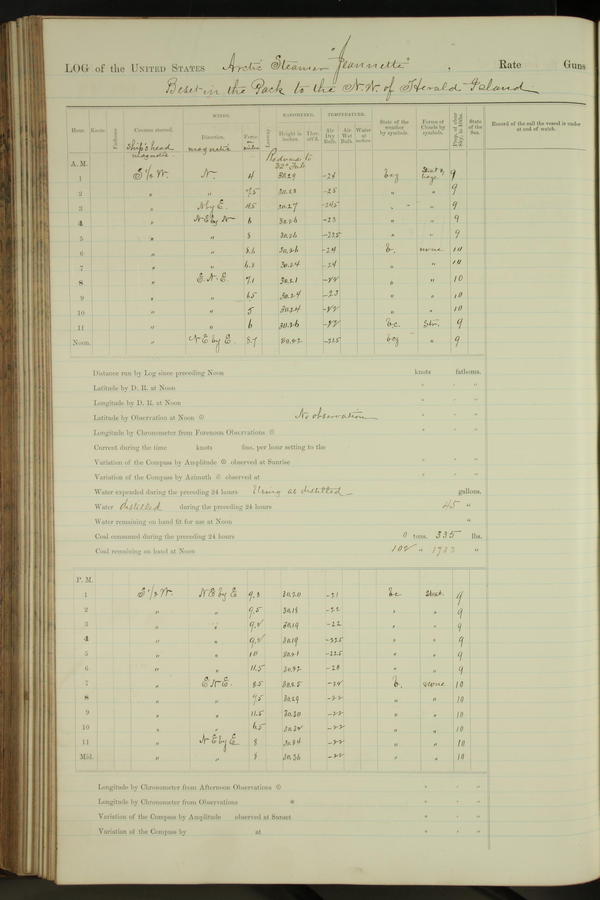 LOG of the UNITED STATES Arctic Steamer "Jeannette", Rate Guns
Beset in the Pack to the N.W. of Herald Island
WINDS. BAROMETER. TEMPERATURE.
Hour. Knots. Fathoms. Courses steered. Direction. Force Leeway. Height in inches. Ther. att'd. Air Dry Bulb. Air Wet Bulb. Water at surface. State of the weather by symbols. Forms of Clouds by symbols. Prop. of clear Sky in 10ths. State of the Sea. Record of the sail the vessel is under at end of watch.
Ship's head magnetic magnetic miles Reduced to 32° Fah
A. M.
1 N. 4 30.29 -24 bcg 9
2 " " 7.5 30.28 -25 " " 9
3 " N by E. 4.5 30.27 -24.5 " " 9
4 " N E by N 6 30.26 -23 " " 9
5 " " 8 30.26 -23.5 " " 9
6 " " 8.6 30.26 -24 b. none 10
7 " " 6.8 30.24 -24 " " 10
8 " E. N. E. 7.1 30.21 -22 " " 10
9 " " 6.5 30.24 -23 " " 10
10 " " 5 30.24 -22 " " 10
11 " " 6 30.26 -22 b.c. Str. 9
Noon. " N E by E. 8.7 -22.5 bcg " 9
Distance run by Log since preceding Noon knots fathoms.
Latitude by D. R. at Noon ° ' "
Longitude by D. R. at Noon ° ' "
Latitude by Observation at Noon ☉ No observation ° ' "
Longitude by Chronometer from Forenoon Observations ☉ ° ' "
Current during the time knots fms. per hour setting to the
Variation of the Compass by Amplitude ☉ observed at Sunrise ° ' "
Variation of the Compass by Azimuth ☉ observed at ° ' "
Water expended during the preceding 24 hours Using as distilled gallons.
Water distilled during the preceding 24 hours 45 "
Water remaining on hand fit for use at Noon "
Coal consumed during the preceding 24 hours 0 tons. 335 lbs.
Coal remaining on hand at Noon 102 " 1733 "
P. M.
1 N E by E 9.3 30.20 -21 bc Strat. 9
2 " " 9.5 30.18 -22 " " 9
3 " " 9.2 30.19 -22 " " 9
4 " " 9.2 30.19 -22.5 " " 9
5 " " 10 30.21 -22.5 " " 9
6 " " 11.5 " " 9
7 " E N E. 8.5 30.25 -22 b. none 10
8 " " 9.5 30.29 -22 " " 10
9 " " 11.5 30.30 -22 " " 10
10 " " 6.5 30.32 -22 " " 10
11 " N E by E 8 30.34 -22 " " 10
Mid. " " 8 30.36 -22 " " 10
Longitude by Chronometer from Afternoon Observations ☉ ° ' "
Longitude by Chronometer from Observations * ° ' "
Variation of the Compass by Amplitude observed at Sunset ° ' "
Variation of the Compass by at ° ' "